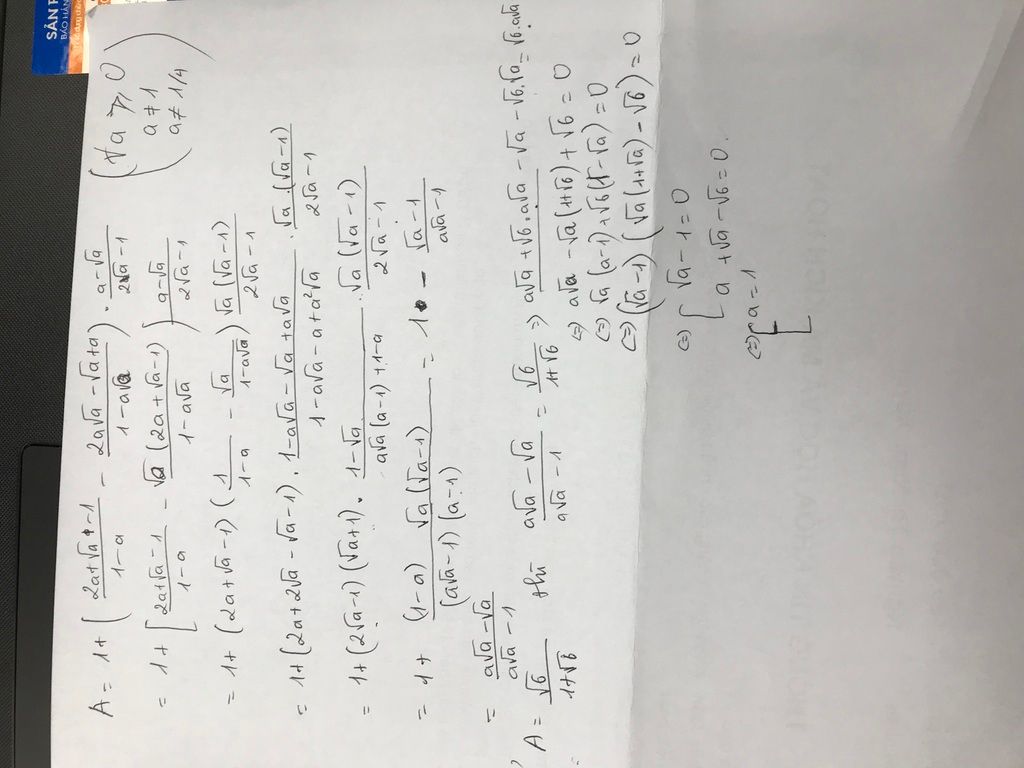 SẢN P
BẢO HÀN
A = 1 + ( (2a+√a-1)/(1-a) - (2a√a-√a+a)/(1-a√a) ) . (a-√a)/(2√a-1) (∀a ⩾ 0
a ≠ 1
a ≠ 1/4)
= 1 + [ (2a+√a-1)/(1-a) - √a(2a+√a-1)/(1-a√a) ) (a-√a)/(2√a-1)
= 1 + (2a+√a-1) ( 1/(1-a) - √a/(1-a√a) ) √a(√a-1)/(2√a-1)
= 1 + (2a+2√a-√a-1) . (1-a√a-√a+a√a)/(1-a√a-a+a²√a) . √a.(√a-1)/(2√a-1)
= 1 + (2√a-1)(√a+1) . (1-√a)/(a√a(a-1)+1-a) . √a(√a-1)/(2√a-1)
= 1 + (1-a) √a(√a-1)/((a√a-1)(a-1)) = 1 - (√a-1)/(a√a-1)
= (a√a-√a)/(a√a-1)
A = √6/(1+√6) thì (a√a-√a)/(a√a-1) = √6/(1+√6) => a√a+√6.a√a-√a-√6.√a = √6.a√a
⇔ a√a-√a(1+√6)+√6 = 0
⇔ √a(a-1)+√6(1-√a) = 0
⇔ (√a-1)(√a(1+√a)-√6) = 0
⇔ [ √a-1 = 0
a+√a-√6 = 0.
⇔ [ a = 1